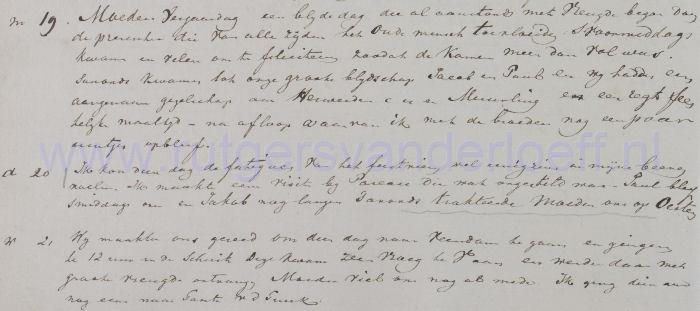 m 19. Moeders verjaardag een blijde dag die al aanstonds met vreugde begon door
de presenten die van alle zijden het Oude mensch toevloeiden. 's voormiddags
kwamen velen om te feliciteren zoodat de Kamer meer dan vol was.
's avonds kwamen tot onze groote blijdschap Jacob en Paul en wij hadden een
aangenaam gezelschap aan en een regt
maaltijd - na afloop waarvan ik met de broeders nog een paar
uurtjes opbleef.
www.rutgersvanderloeff.nl
d 20 Ik kon deze dag de fatigues van het feestvieren wel eenigzins in mijne beenen
voelen. Ik maakte een visite bij die wat ongesteld was. Paul bleef
smiddags en Jakob nog langer 's avonds trakteerde Moeder ons op Oesters
w 21 Wij maakten ons gereed om dezen dag naar Veendam te gaan en gingen
te 12 uur in de Schuit. Deze kwam zeer vroeg te aan en werden daar met
groote vreugde ontvangen, Moeder viel ons nog al mede. Ik ging dien
nog eens naar Tante